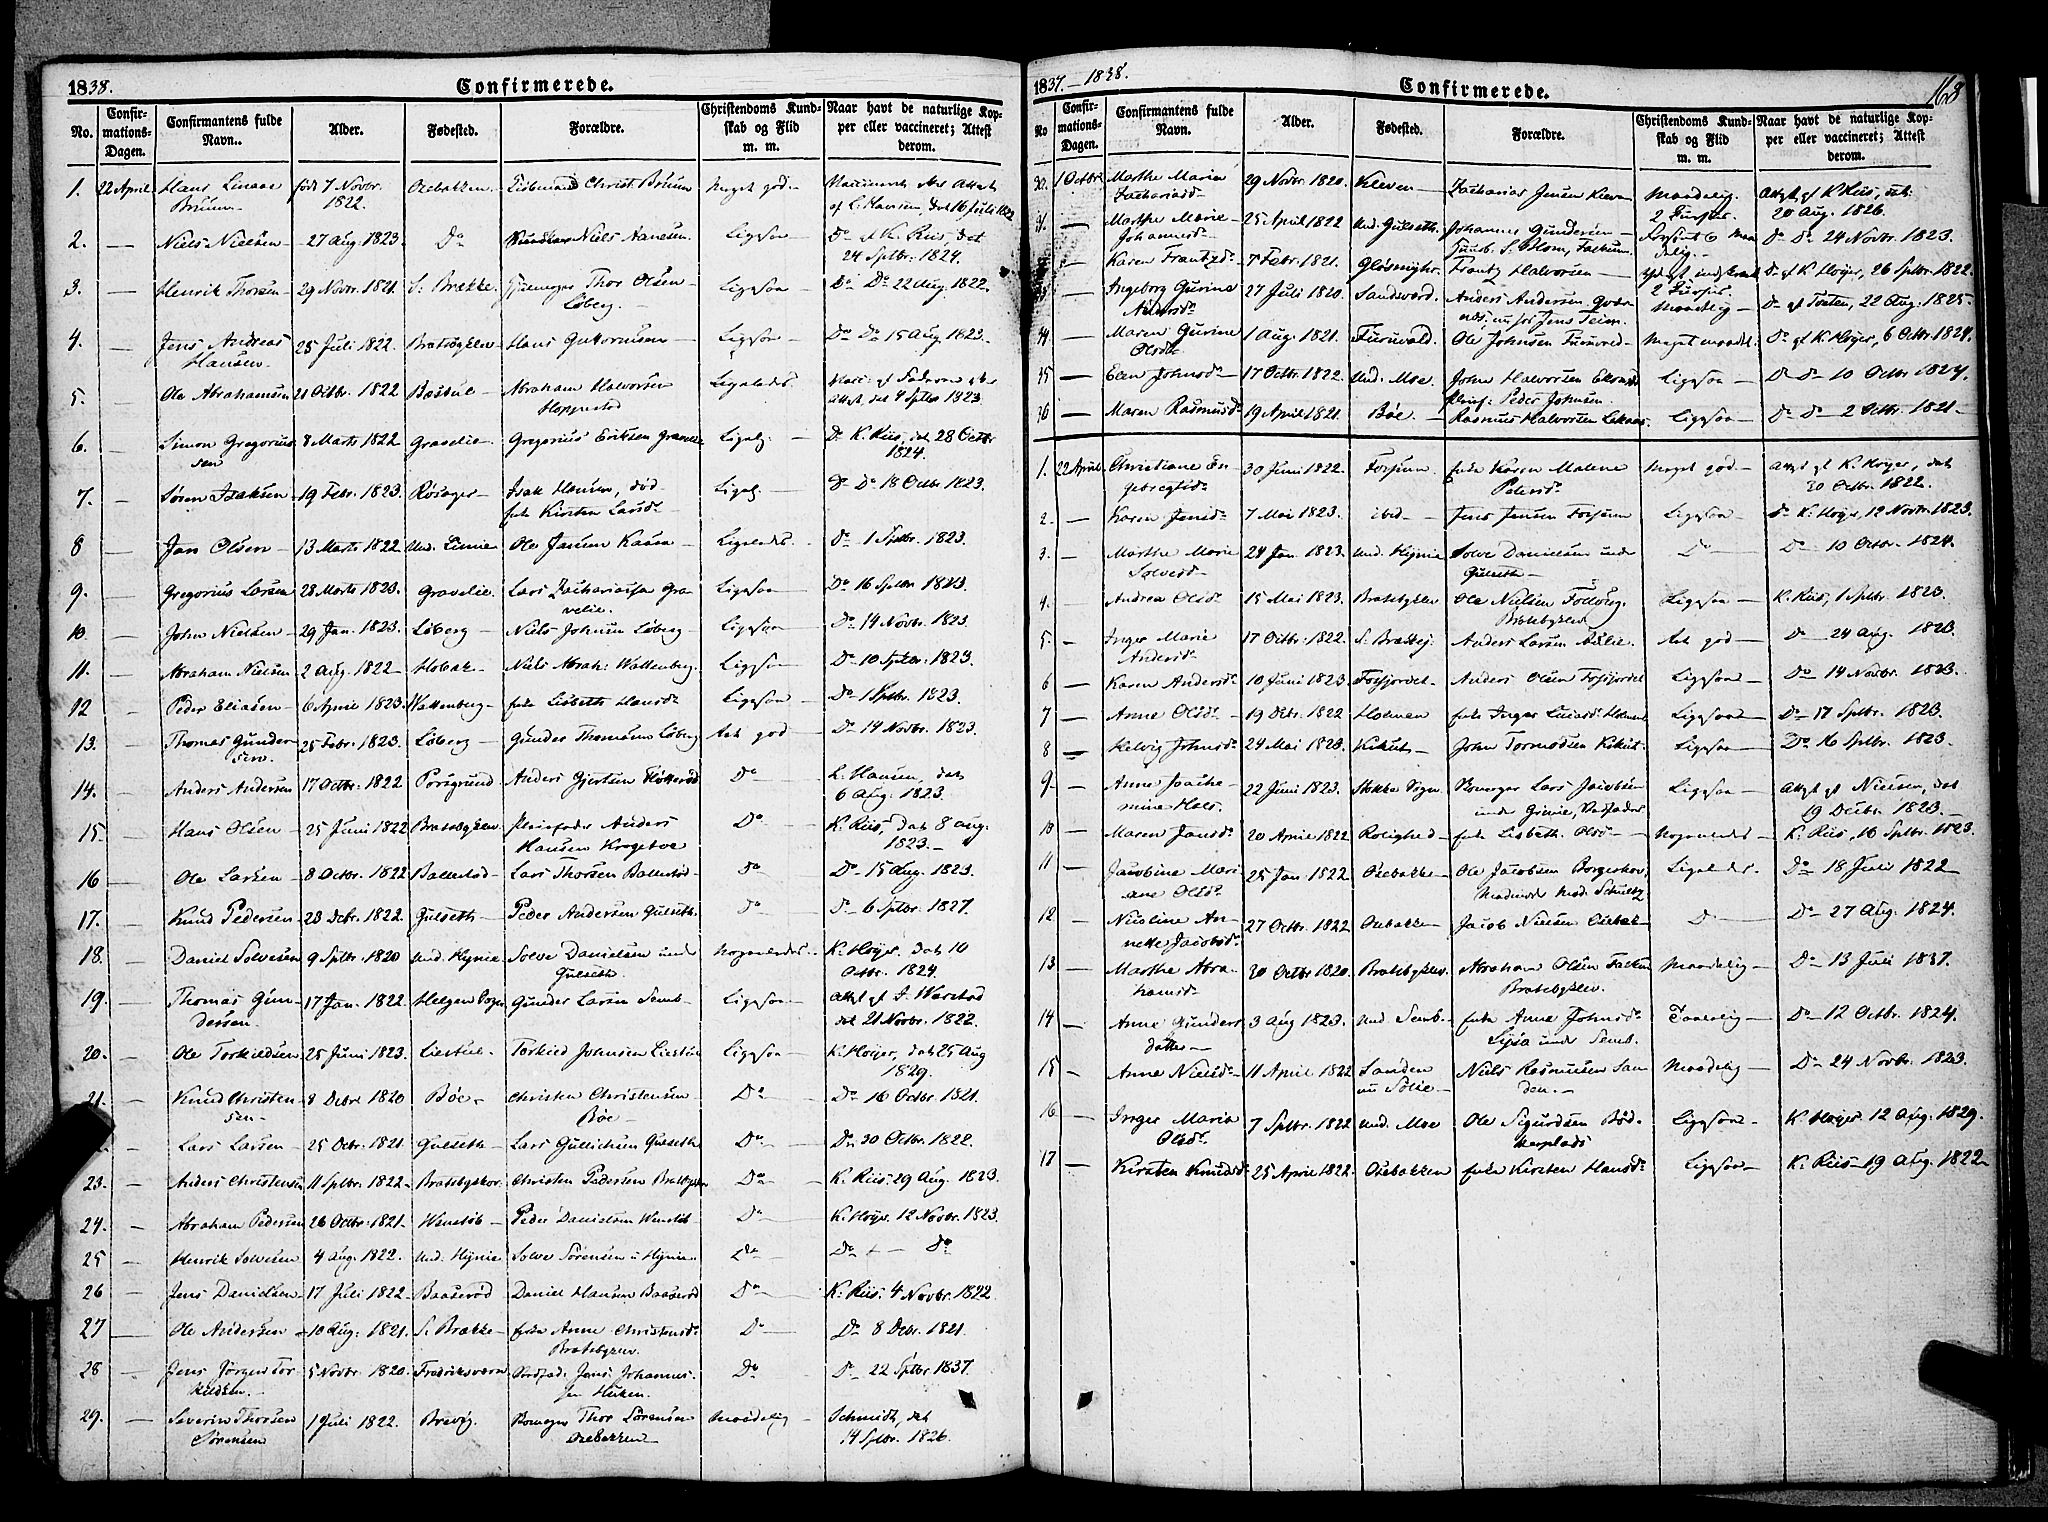 1838.
Confirmerede.
No.
Confir-
mations-
Dagen.
Confirmantens fulde
Navn..
Alder.
Fødested.
Forældre.
Christendoms Kund-
skab og Flid
m. m.
Naar havt de naturlige Kop-
per eller vaccineret; Attest
derom.
1. 22 April Hans Linaae født 7 Novbr. Osebakken Christ Bruun Meget god
Bruun 1822. af L. Hansen, dat 16 Juli 1822
2. — Niels Nielsen 27 Aug. 1823. Do Niels Aanesen Ligesaa Do af K. Riis, dat
24 Sptbr. 1824.
3. — Henrik Thorsen 29 Novbr. 1821. S. Brække Thor Olsen Ligesaa Do Do 22 Aug. 1822.
Løberg
4. — Jens Andreas 25 Juli 1822. Bratsbgklev Hans Guttormsen Ligesaa Do Do 15 Aug. 1823.
Hansen
5. — Ole Abrahamsen 21 Octbr. 1822 Abraham Halvorsen Ligeledes
4 Sptbr 1823
6. — Simon Gregorius 8 Marts 1822 Gravelie Gregorius Eriksen Gravelie Ligel. Do K. Riis, dat 28 Octbr
sen 1824.
7. — Søren Isaksen 19 Febr. 1823. Røsager Isak Hansen, død Ligel. Do Do 18 Octbr 1823.
fra Kirsten Larsd.
8 — Jan Olsen 13 Marts 1822 Und. Limie Ole Jansen Kaasa Ligeledes. Do 1 Sptbr. 1823.
9. — Gregorius Larsen 28 Marts 1823. Gravelie Lars Zachariasen Gra- Ligesaa Do 16 Sptbr 1823.
velie.
10. — John Nielsen 29 Jan. 1823. Løberg Niels Johnsen Løberg Ligesaa Do 14 Novbr. 1823
11. — Abraham Nielsen 2 Aug. 1822 Hobæk Niels Abrah: Wattenberg Ligesaa Do 10 Sptbr. 1823.
12 — Peder Eliasen 6 April 1823. Wattenberg Lisbeth Hansd. Ligesaa Do 1 Sptbr. 1823.
13. — Thomas Gunder- 25 Febr. 1823. Løberg Gunder Thomesen Løberg Art god Do 14 Novbr. 1823.
sen.
14. — Anders Andersen 17 Octbr. 1822 Porsgrund Anders Gjertsen Flotterød Do L. Hansen, dat
6 Aug. 1823.
15 — Hans Olsen 25 Juni 1822 Bratsbgklev Pleiefader Anders Do K. Riis, dat 8 Aug.
Hansen Krogeboe 1823.
16 — Ole Larsen 8 Octbr. 1822 Ballestad Lars Thorsen Ballestad Do Do 15 Aug. 1823.
17. — Knud Pedersen 23 Debr. 1822. Gulseth Peder Andersen Gulseth. Do Do 6 Sptbr. 1827.
18. — Daniel Solvesen 9 Sptbr. 1820 Und. Hynie Solve Danielsen und Nogenledes K. Høyer, dat 10
Gulseth. Octbr. 1824.
19. — Thomas Gun- 17 Jan. 1822. Helgen Sogn Gunder Larsen Semb Ligesaa Attest af J. Warstad
dersen. dat 21 Novbr. 1822.
20. — Ole Torkildsen 25 Juni 1823. Liestul Torkild Johnsen Liestul Ligesaa K. Høyer, dat 25 Aug
1829.
21. — Knud Christen- 8 Debr 1820 Bøe Christen Christensen Do Do 16 Octbr. 1821.
sen Bøe
— Lars Larsen 25 Octbr. 1821. Gulseth Lars Gullichsen Gulseth Do Do 30 Octbr. 1822.
23. — Anders Christensen 11 Sptbr. 1822 Bratsbgklev. Christen Pedersen Bratsbgklev Do K. Riis 29 Aug. 1823.
24. — Abraham Pedersen 26 Octbr. 1821. Wenstøb Peder Danielsen Wenstøb Do K. Høyer. 12 Novbr. 1823.
25 — Henrik Solvesen 4 Aug. 1822. Und. Hynie Solve Sørensen u: Hynie Do Do — Do
26 — Jens Danielsen 17 Juli 1822 Baaserød Daniel Hansen Baaserød Do K. Riis 4 Novbr. 1822
27 — Ole Andersen 10 Aug. 1821. S. Brække Anne Christensd. Do Do 8 Debr. 1821.
Bratsbgklev.
28 — Jens Jørgen Tor- 5 Novbr. 1820. Fredriksværn Jens Johannes- Do Do 22 Sptbr. 1837.
kildsen sen
29. — Severin Thorsen 1 Juli 1822. Brevig. Thor Sørensen Maadelig Schmidt, dat
Sørensen Osebakken 14 Sptbr. 1826.
1837. — 1838.
Confirmerede.
168
No
Confir-
mations-
Dagen.
Confirmantens fulde
Navn.
Alder.
Fødested.
Forældre.
Christendoms Kund-
skab og Flid
m. m.
Naar havt de naturlige Kop-
per eller vaccineret; Attest
derom.
30. 1 Octbr. Marthe Maria 29 Novbr. 1820. Kleven Zacharias Jensen Kleven Maadelig. Attest af K. Riis, dat
Zachariasd. 20 Aug. 1826.
31. — Marthe Marie 25 April 1822 Und. Gulseth. Johannes Gundersen Do Do 24 Novbr. 1823.
Johannesd.
— Karen Frantzd. 7 Febr. 1821. Frantz Halvorsen Do af K. Høyer, 26 Sptbr. 1822.
— Ingeborg Gurine 27 Juli 1820. Anders Andersen Maadelig Do af Tosten, 22 Aug. 1825.
34 — Maren Gurine 1 Aug. 1821. Furuvald. Ole Johnsen Meget maadel. Do af K. Høyer, 6 Octbr. 1824.
Olsd.
35 — Elen Johnsd. 17 Octbr. 1822. Und. Moe. John Halvorsen Ligesaa Do Do 10 Octbr 1824.
Peder Johnsen.
36 — Maren Rasmusd. 19 April 1821. Bøe Rasmus Halvorsen Ligesaa Do Do 2 Octbr. 1821
1. 22 April Christiane En- 30 Juni 1822. Fossum Karen Malene Meget god Attest af K. Høyer, dat
gebregtsd. Petersd. 30 Octbr. 1822.
2. — Karen Jensd. 7 Mai 1823. ibid Jens Jensen Fossum Ligesaa Do K. Høyer, 12 Novbr. 1823.
3. — Marthe Marie 24 Jan. 1823. Und. Hynie Solve Danielsen und Do Do 10 Octbr. 1824.
Solvesd. Gulseth
4. — Andrea Olsd. 15 Mai 1823. Bratsbgklev Ole Nielsen Ligesaa K. Riis, 1 Sptbr. 1823.
Bratsbgklev
5. — Inger Marie 17 Octbr. 1822. S. Brække Anders Larsen Art god Do 24 Aug. 1823.
Andersd.
6 — Karen Andersd. 10 Juni 1823. Anders Olsen Ligesaa Do 14 Novbr. 1823.
7 — Anne Olsd. 19 Debr. 1822 Holmen Inger Ligesaa Do 17 Sptbr. 1823.
8 — Helvig Johnsd. 24 Mai 1823. Kikut John Tormodsen Kikut Ligesaa Do 16 Sptbr. 1823.
9 — Anne Joache- 22 Juni 1823. Stokke Sogn Lars Jacobsen Ligesaa Attest af Nielsen, dat
mine 19 Decbr. 1823.
10 — Maren Jansd. 20 April 1822 Rolighed Lisbeth Olsd. Nogenledes K. Riis, 16 Sptbr. 1823.
11 — Jacobine Mari- 25 Jan. 1822. Osebakken Ole Jacobsen Ligeledes. Do 18 Juli 1822
ane Olsd.
12 — Nicoline An- 27 Octbr. 1822 Osebakken Jacob Nielsen Osebak. Do Do 27 Aug. 1824.
nette Jacobsd.
13 — Marthe Abra- 30 Octbr 1820. Bratsbgklev. Abraham Olsen Maadelig Do 13 Juli 1837.
hamsd. Bratsbgklev.
14 — Anne Gunders 3 Aug 1823. Und Semb. Anne Johnsd. Taalelig Do 12 Octbr. 1824.
datter under Semb.
15 — Anne Nielsd. 11 April 1822 Sanden Niels Rasmussen San- Maadelig Do 24 Novbr. 1823.
den.
16 — Inger Maria 7 Sptbr. 1822 Und. Moe Ole Sigurdsen Bød- Ligesaa K. Høyer 12 Aug. 1829.
Olsd. kerplads
17 — Kirsten Knudsd. 25 April 1822. Osebakken Kirsten Hansd. Ligesaa K. Riis 19 Aug. 1822